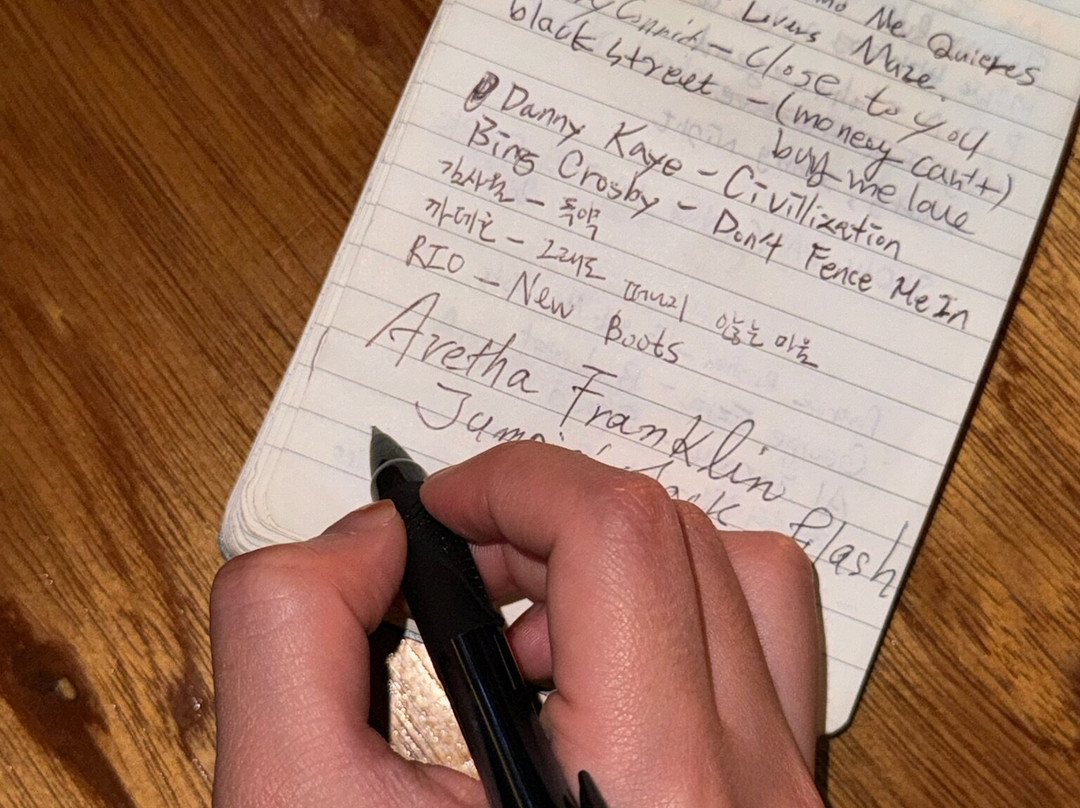 Me Quieres
Lovers Maze.
Connick - Close to you
blackstreet - (money can't)
buy me love
Danny Kaye - Civillization
Bing Crosby - Don't Fence Me In
김사월 - 독약
까데호 - 그래도 떠나지 않는 마음
RIO - New Boots
Aretha Franklin
Jumpin' Jack Flash